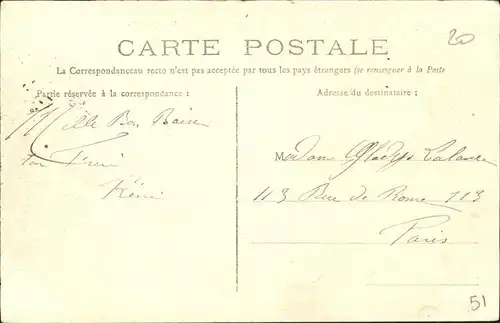 20
CARTE POSTALE
La Correspondanceau recto n'est pas acceptée par tous les pays étrangers (se renseigner à la Poste
Partie réservée à la correspondance :
Adresse du destinataire :
Mille Bon Baiser
ton
Madame Gladys Lalance
113 Rue de Rome 113
Paris
51